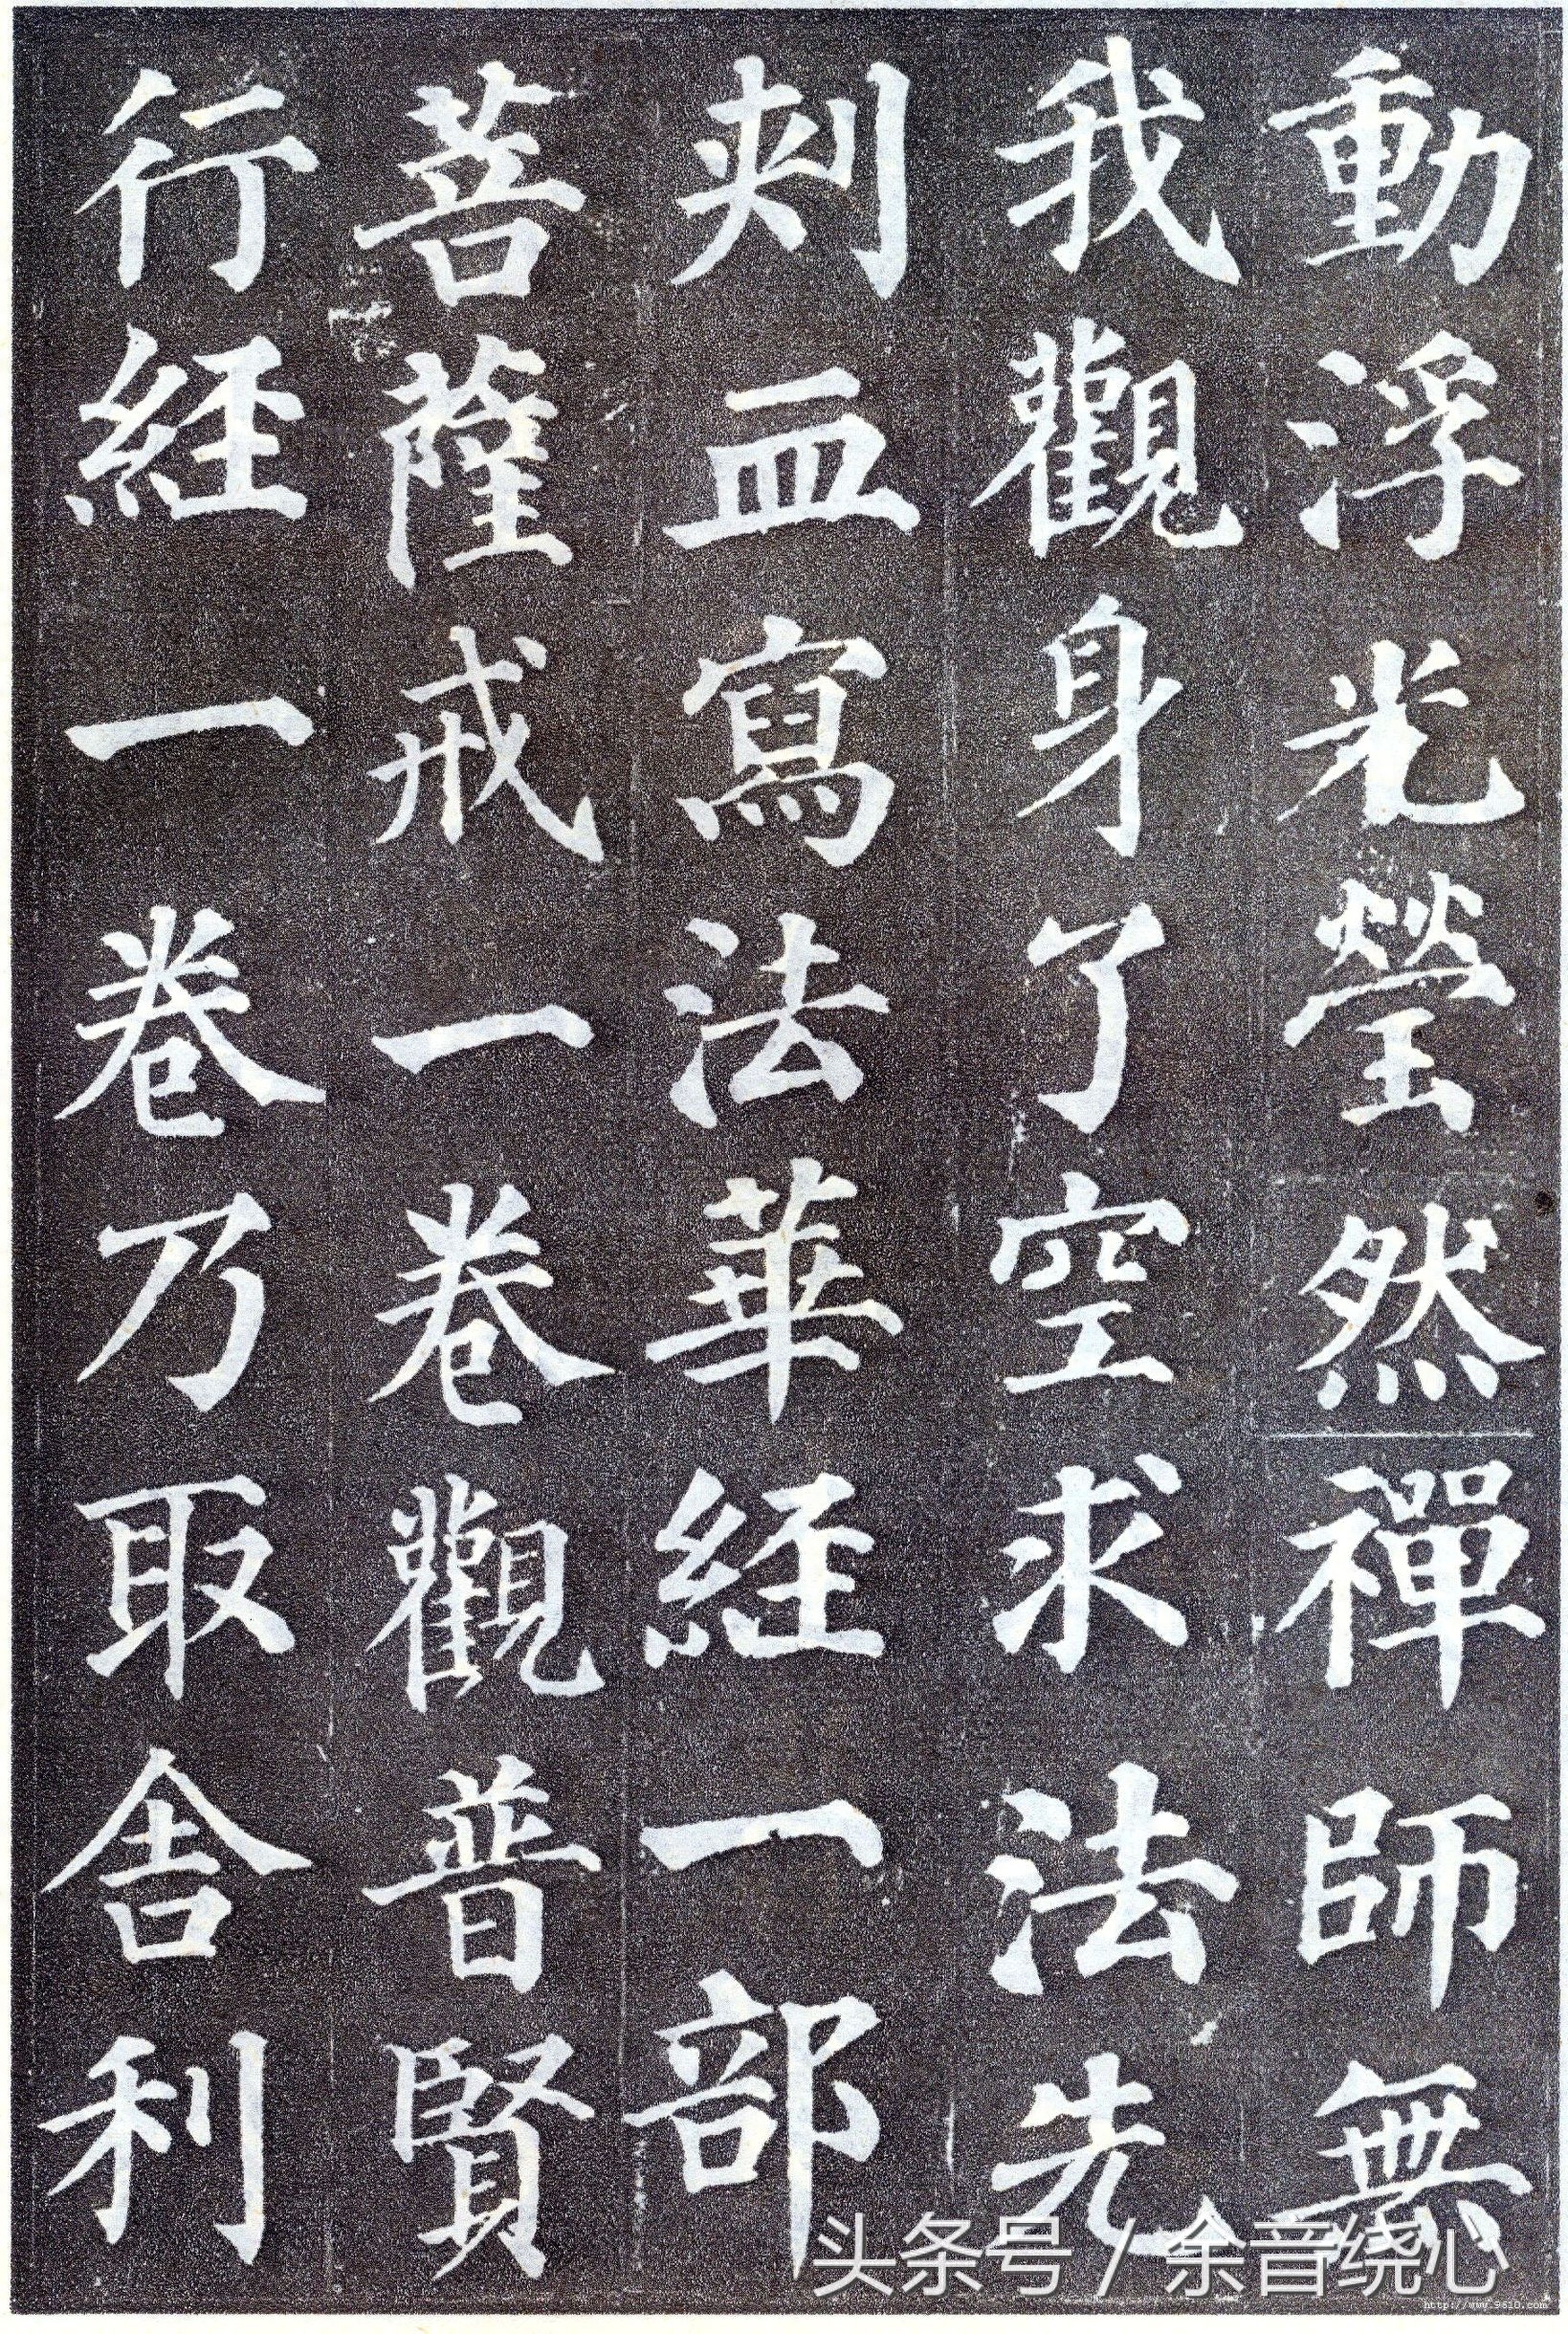 動浮光瑩然禪師無
我觀身了空求法先
刾血寫法華経一部
菩薩戒一卷觀普賢
行経一卷乃取舍利
头条号 / 余音绕心
http://www.9610.com